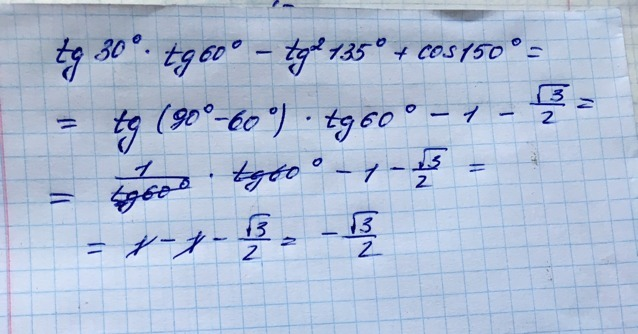 tg 30° · tg 60° - tg² 135° + cos 150° =
= tg (90° - 60°) · tg 60° - 1 - √3/2 =
= 1/tg 60° · tg 60° - 1 - √3/2 =
= 1 - 1 - √3/2 = -√3/2